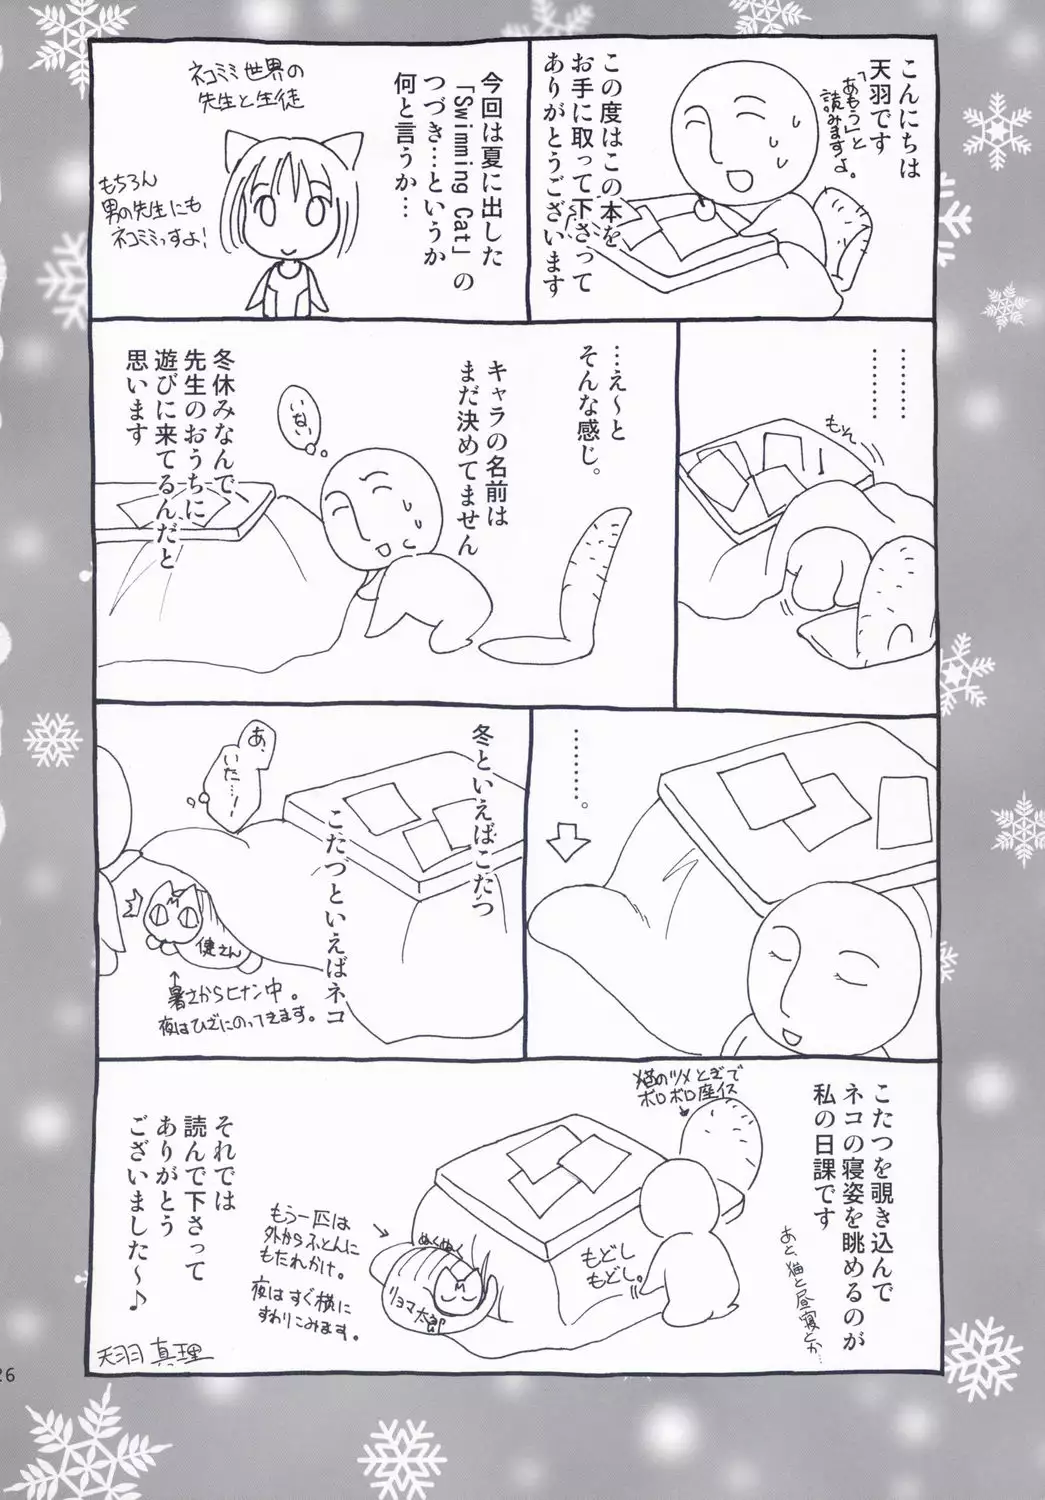 こんにちは
天羽です
「あもう」と
読みますよ。
この度はこの本を
お手に取って下さって
ありがとうございます
今回は夏に出した
「Swimming Cat」の
つづき…というか
何と言うか…
ネコミミ世界の
先生と生徒
もちろん
男の先生にも
ネコミミっすよ!
…………
…………
もそ
…え〜と
そんな感じ。
キャラの名前は
まだ決めてません
いない
冬休みなんで
先生のおうちに
遊びに来てるんだと
思います
………。
冬といえばこたつ
こたつといえばネコ
あ、
いた…!
健さん
暑さからヒナン中。
夜はひざにのってきます。
こたつを覗き込んで
ネコの寝姿を眺めるのが
私の日課です
あと猫と昼寝とか…
猫のツメとぎで
ボロボロ座イス
もどし
もどし。
ぬくぬく
リョマ太郎
もう一匹は
外からふとんに
もたれかけ。
夜はすぐ横に
すわりこみます。
それでは
読んで下さって
ありがとう
ございました〜♪
天羽真理
26